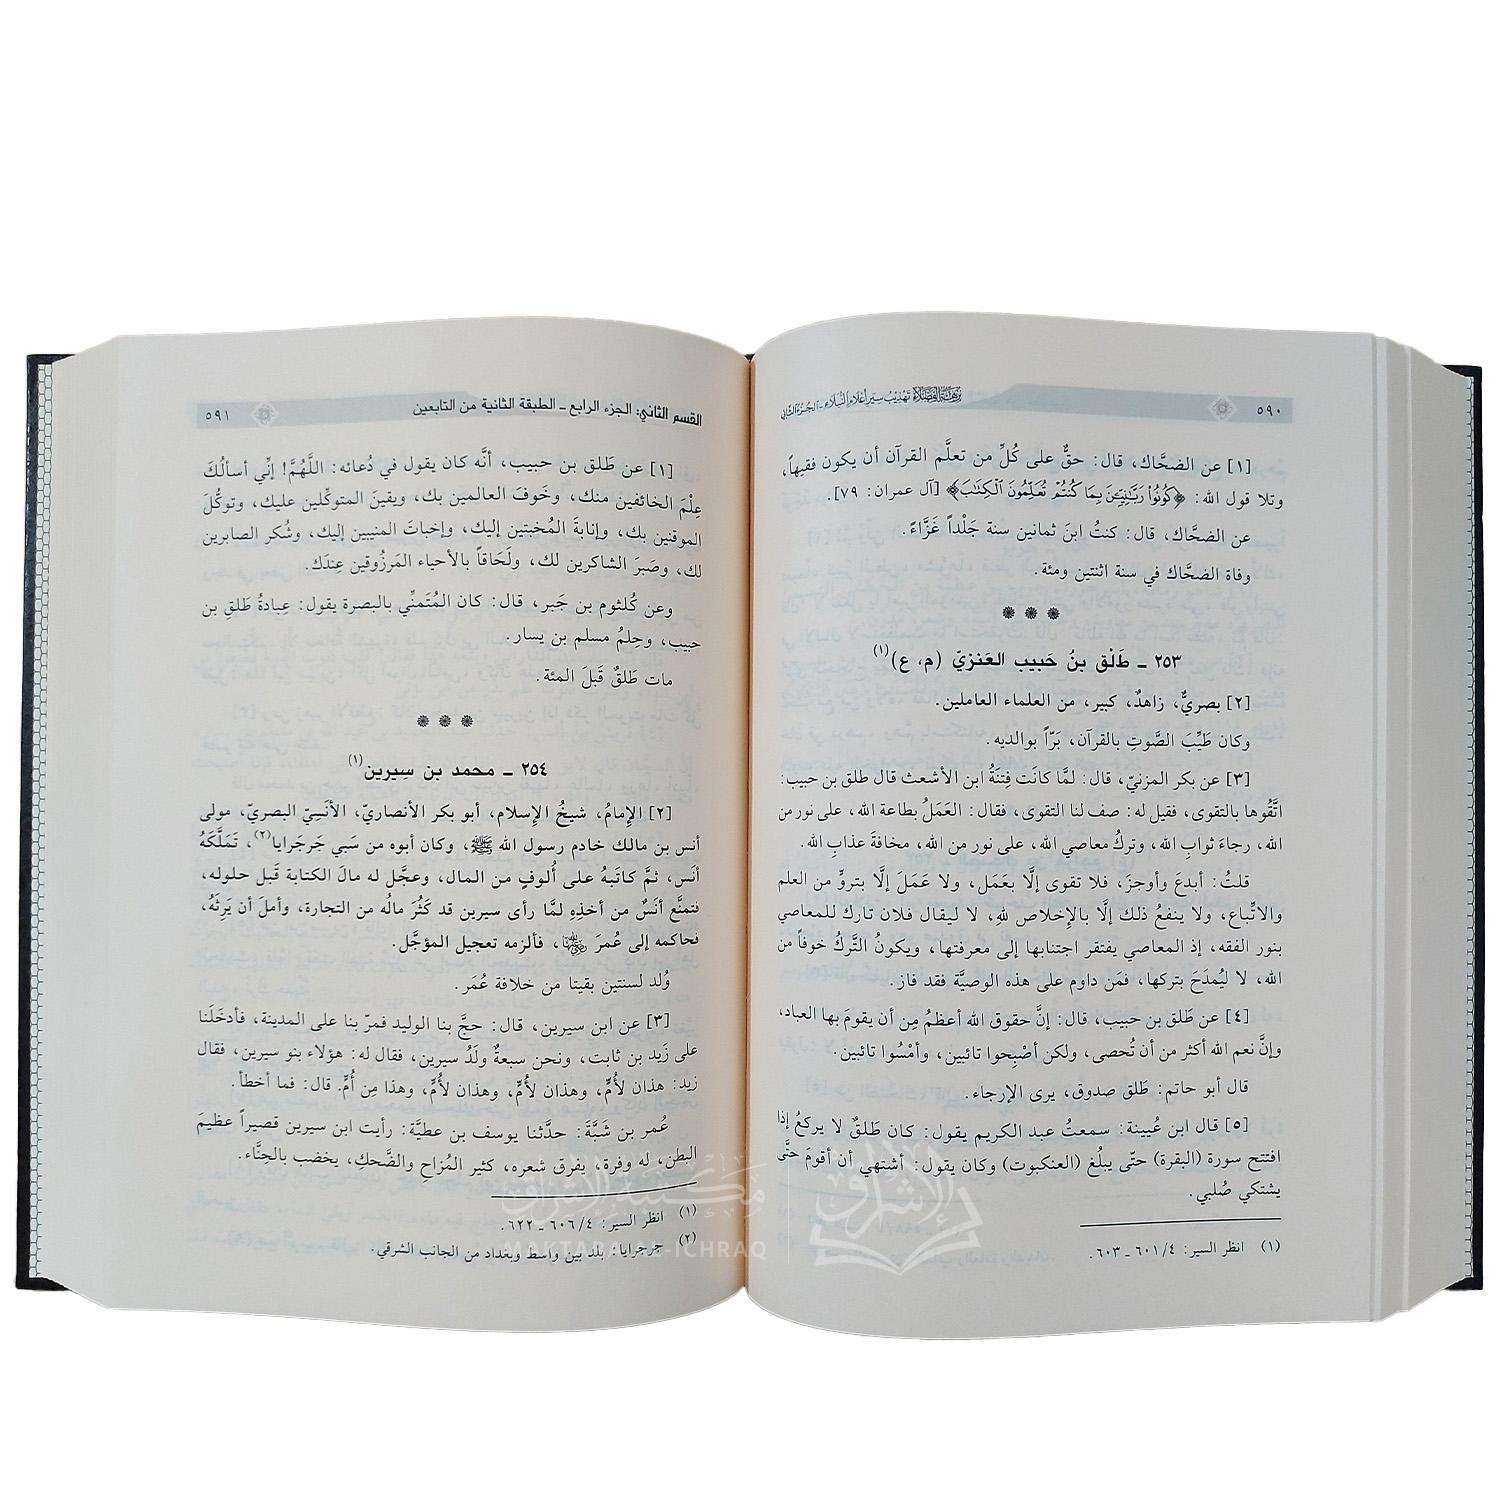 ٥٩٠
نزهة الفضلاء تهذيب سير أعلام النبلاء - الجزء الثاني
[١] عن الضحَّاك، قال: حقٌّ على كُلِّ من تعلَّم القرآن أن يكون فقيهاً،
وتلا قول الله: ﴿كُونُوا۟ رَبَّـٰنِيِّـۧنَ بِمَا كُنتُمْ تُعَلِّمُونَ ٱلْكِتَـٰبَ﴾ [آل عمران: ٧٩].
عن الضحَّاك، قال: كنتُ ابنَ ثمانين سنة جَلْداً غَزَّاءً.
وفاة الضحَّاك في سنة اثنتين ومئة.
٢٥٣ ـ طَلْق بنُ حَبيب العَنزيّ (م، ع)(١)
[٢] بصريٌّ، زاهدٌ، كبير، من العلماء العاملين.
وكان طَيِّبَ الصَّوتِ بالقرآن، بَرّاً بوالديه.
[٣] عن بكر المزنيّ، قال: لمَّا كانَت فِتنَةُ ابن الأشعث قال طلق بن حبيب:
اتَّقُوها بالتقوى، فقيل له: صف لنا التقوى، فقال: العَمَلُ بطاعة الله، على نور من
الله، رجاءَ ثوابِ الله، وتركُ معاصي الله، على نور من الله، مخافةَ عذابِ الله.
قلتُ: أبدعَ وأوجزَ، فلا تقوى إلَّا بعَمَل، ولا عَمَلَ إلَّا بتروٍّ من العلم
والاتِّباع، ولا ينفعُ ذلك إلَّا بالإخلاص لله، لا ليقال فلان تارك للمعاصي
بنور الفقه، إذ المعاصي يفتقر اجتنابها إلى معرفتها، ويكونُ التَّركُ خوفاً من
الله، لا ليُمدَحَ بتركها، فمَن داوم على هذه الوصيَّة فقد فاز.
[٤] عن طَلق بن حبيب، قال: إنَّ حقوق الله أعظمُ مِن أن يقومَ بها العباد،
وإنَّ نعم الله أكثر من أن تُحصى، ولكن أصْبِحوا تائبين، وأمْسُوا تائبين.
قال أبو حاتم: طَلق صدوق، يرى الإرجاء.
[٥] قال ابن عُيينة: سمعتُ عبد الكريم يقول: كان طَلقٌ لا يركعُ إذا
افتتح سورة (البقرة) حتّى يبلُغ (العنكبوت) وكان يقول: أشتهي أن أقومَ حتَّى
يشتكي صُلبي.
(١) انظر السير: ٤/ ٦٠١ ـ ٦٠٣.
القسم الثاني: الجزء الرابع ـ الطبقة الثانية من التابعين
٥٩١
[١] عن طَلق بن حبيب، أنَّه كان يقول في دُعائه: اللَّهُمَّ! إنِّي أسألُكَ
عِلْمَ الخائفين منك، وخَوفَ العالمين بك، ويقينَ المتوكِّلين عليك، وتوكُّلَ
الموقنين بك، وإنابةَ المُخبتين إليك، وإخباتَ المنيبين إليك، وشُكر الصابرين
لك، وصَبرَ الشاكرين لك، ولَحَاقاً بالأحياء المَرزُوقين عِندَك.
وعن كُلثوم بن جَبر، قال: كان المُتَمنِّي بالبصرة يقول: عِبادةُ طَلقِ بن
حبيب، وحِلمُ مسلم بن يسار.
مات طَلقٌ قَبلَ المئة.
٢٥٤ ـ محمد بن سِيرين(١)
[٢] الإمامُ، شيخُ الإسلام، أبو بكر الأنصاريّ، الأنَسِيّ البصريّ، مولى
أنس بن مالك خادم رسول الله ﷺ، وكان أبوه من سَبي جَرجَرايا(٢)، تَمَلَّكَهُ
أنَس، ثمَّ كاتَبهُ على أُلوفٍ من المال، وعجَّل له مالَ الكتابة قَبل حلوله،
فتمنَّع أنَسٌ من أخذِهِ لمَّا رأى سيرين قد كَثُرَ مالُه من التجارة، وأملَ أن يَرِثَهُ،
فحاكمه إلى عُمرَ ﵁، فألزمه تعجيل المؤجَّل.
وُلد لسنتين بقيتا من خلافة عُمَر.
[٣] عن ابن سيرين، قال: حجَّ بنا الوليد فمرّ بنا على المدينة، فأدخَلَنا
على زَيد بن ثابت، ونحن سبعةٌ ولَدُ سيرين، فقال له: هؤلاء بنو سيرين، فقال
زيد: هذان لأُمٍّ، وهذان لأُمٍّ، وهذان لأُمٍّ، وهذا مِن أُمٍّ. قال: فما أخطأ.
عُمر بن شَبَّةَ: حدَّثنا يوسف بن عطيَّة: رأيت ابن سيرين قصيراً عظيمَ
البطن، له وفرة، يفرق شعره، كثير المُزاحِ والضَّحكِ، يخضب بالحِنَّاء.
(١) انظر السير: ٤/ ٦٠٦ ـ ٦٢٢.
(٢) جرجرايا: بلد بين واسط وبغداد من الجانب الشرقي.
الإشراق
مكتبة الإشراق
MAKTABA AL-ICHRAQ